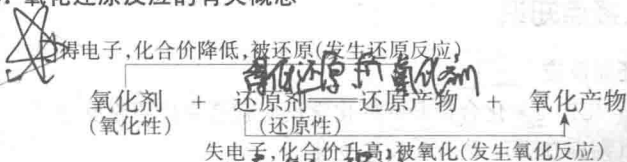 氧化还原反应的有关概念
得电子,化合价降低,被还原(发生还原反应)
得低还原 氧化剂
氧化剂 + 还原剂——还原产物 + 氧化产物
(氧化性) (还原性)
失电子,化合价升高,被氧化(发生氧化反应)